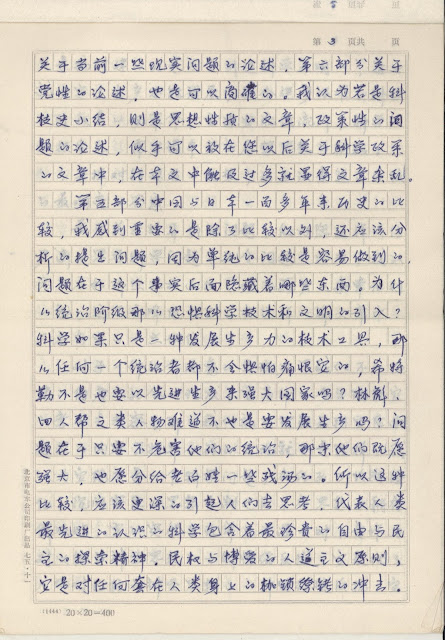 第 3 页共 页
关于当前一些现实问题的论述，第六部分关于
党性的论述，也是可以商榷的。我认为若是科
技史小结，则是思想性强的文章，政策性的问
题的论述，似乎可以放在您以后关于科学政策
的文章中，在本文中触及过多就显得文章杂乱。
第五部分中国与日本一百多年来历史的比
较，我感到重要的是除了比较以外，还应该分
析的提出问题，因为单纯的比较是容易做到的，
问题在于这个事实后面隐藏着哪些东西，为什
么统治阶级那么恐惧科学技术和文明的引入？
科学如果只是一种发展生产力的技术工具，那
么任何一个统治者都不会惧怕痛恨它的，希特
勒不是也要以先进生产来强大国家吗？林彪、
四人帮之类人物难道不也是要发展生产吗？问
题在于只要不危害他们的统治，那末他们既愿
强大，也愿分给老百姓一些残汤的。所以这种
比较，应该更深的引起人们去思考，代表人类
最先进的认识的科学包含着最珍贵的自由与民
主的探索精神。民权与博爱的人道主义原则，
它是对任何套在人类身上的枷锁镣铐的冲击。
(1444) 20×20=400